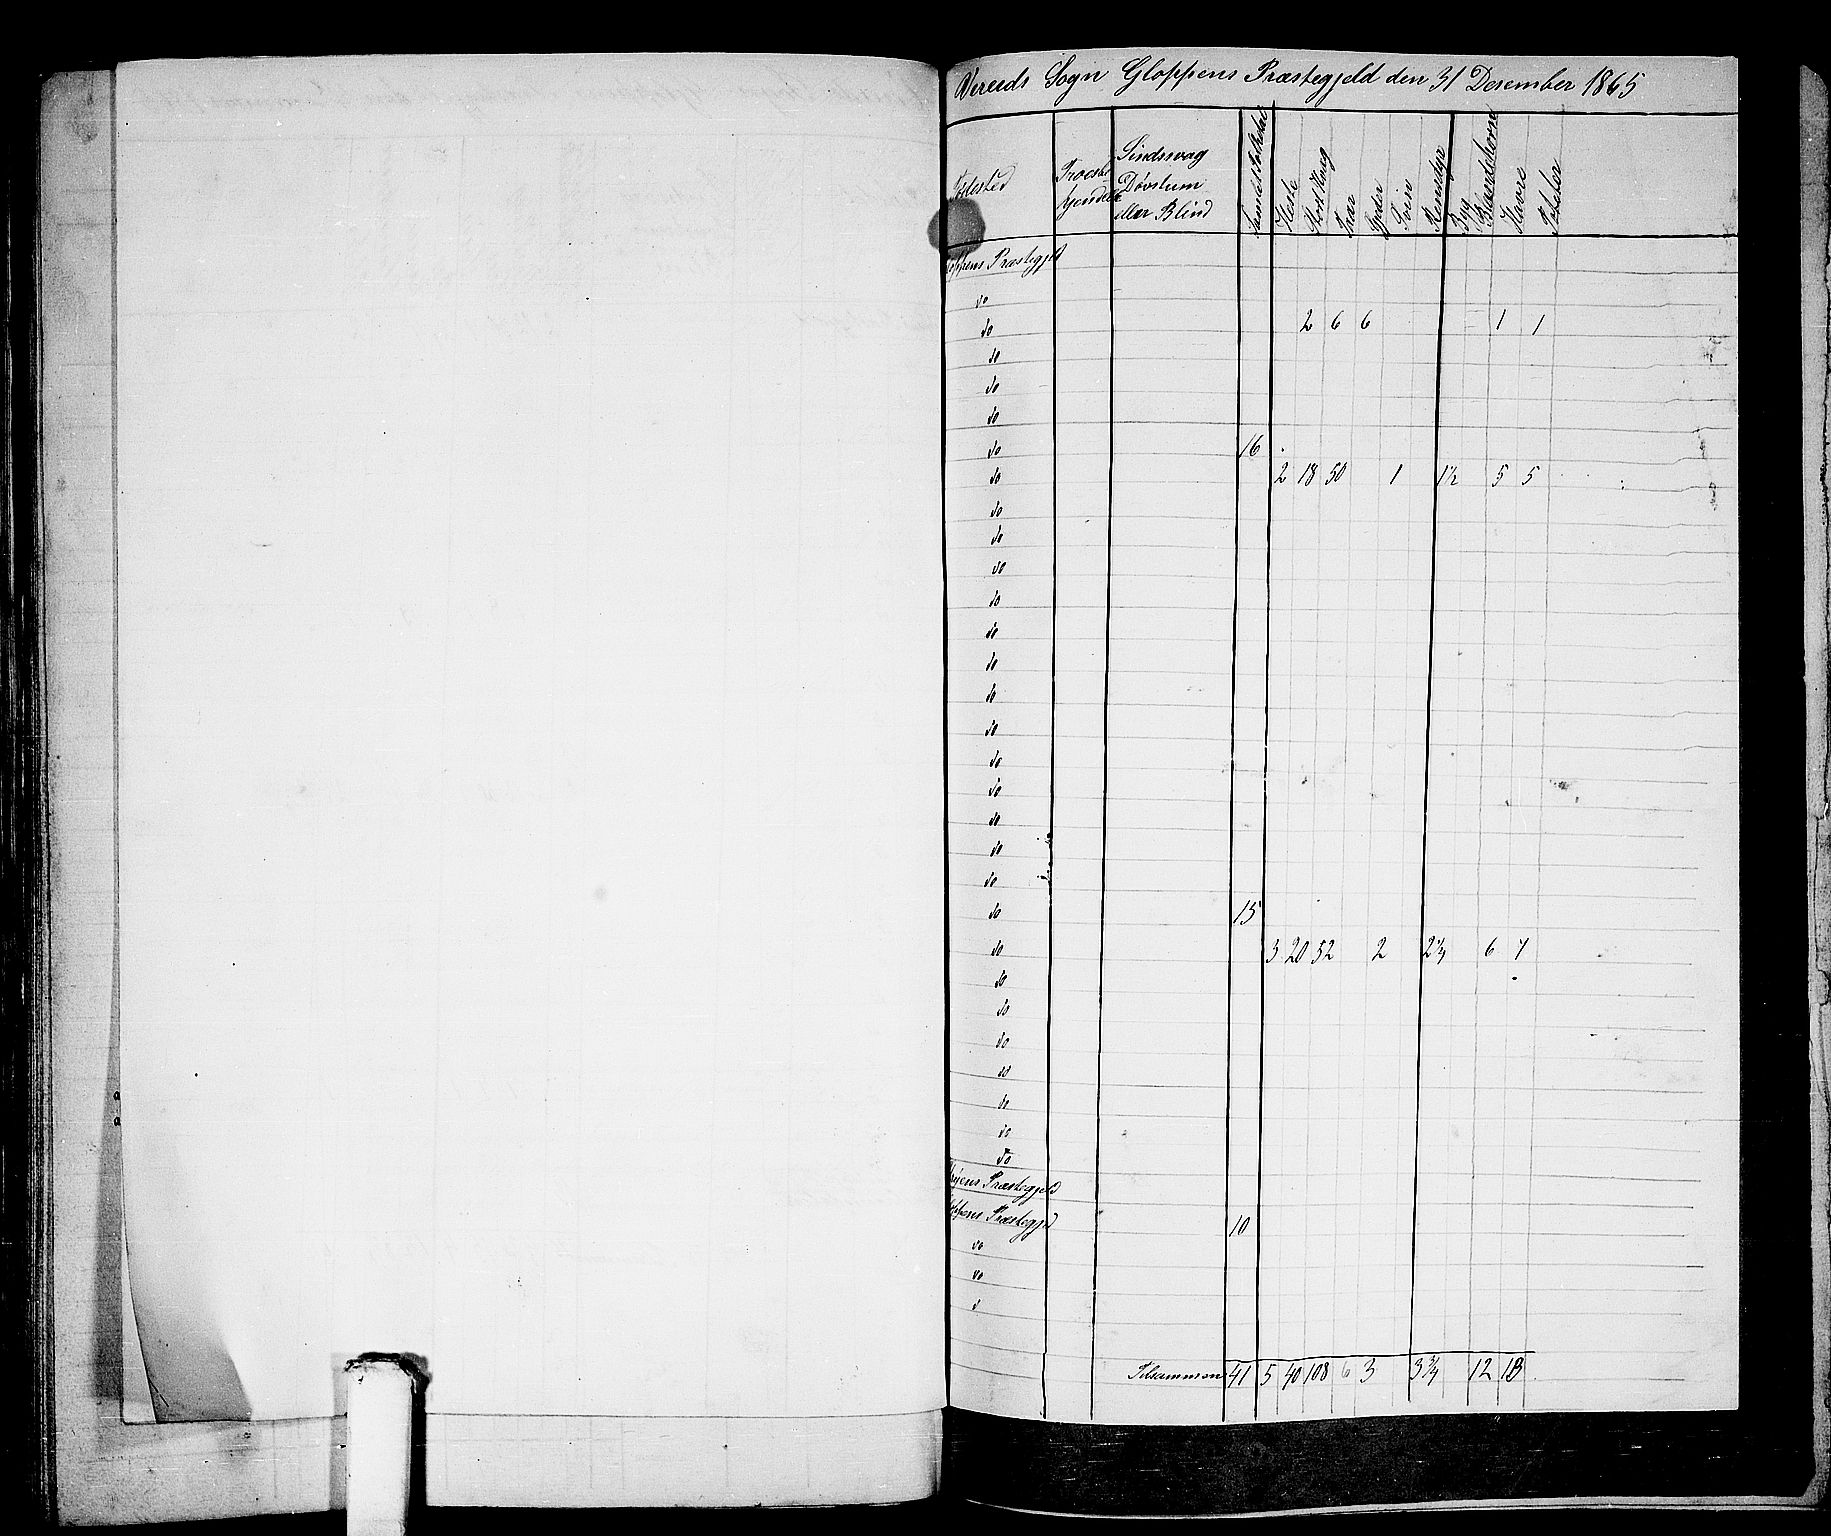 Vereids Sogn Gloppens Præstegjeld den 31 Desember 1865
Troesbe
kjendelse
Sindsvag
Døvstum
eller Blind
Samlet Folketal
Heste
Stort Kvæg
Faar
Gjeder
Svin
Rensdyr
Byg
Blandekorn
Havre
Poteter
oppens Præstegjeld
do
do 2 6 6 1 1
do
do
do
do 16
do 2 18 50 1 1½ 5 5
do
do
do
do
do
do
do
do
do
do
do
do
do
do 15
do 3 20 52 2 2¼ 6 7
do
do
do
do
do
do
do
Præstegjeld
oppens Præstegjeld 10
do
do
d
Tilsammen 41 5 40 108 6 3 3¾ 12 13